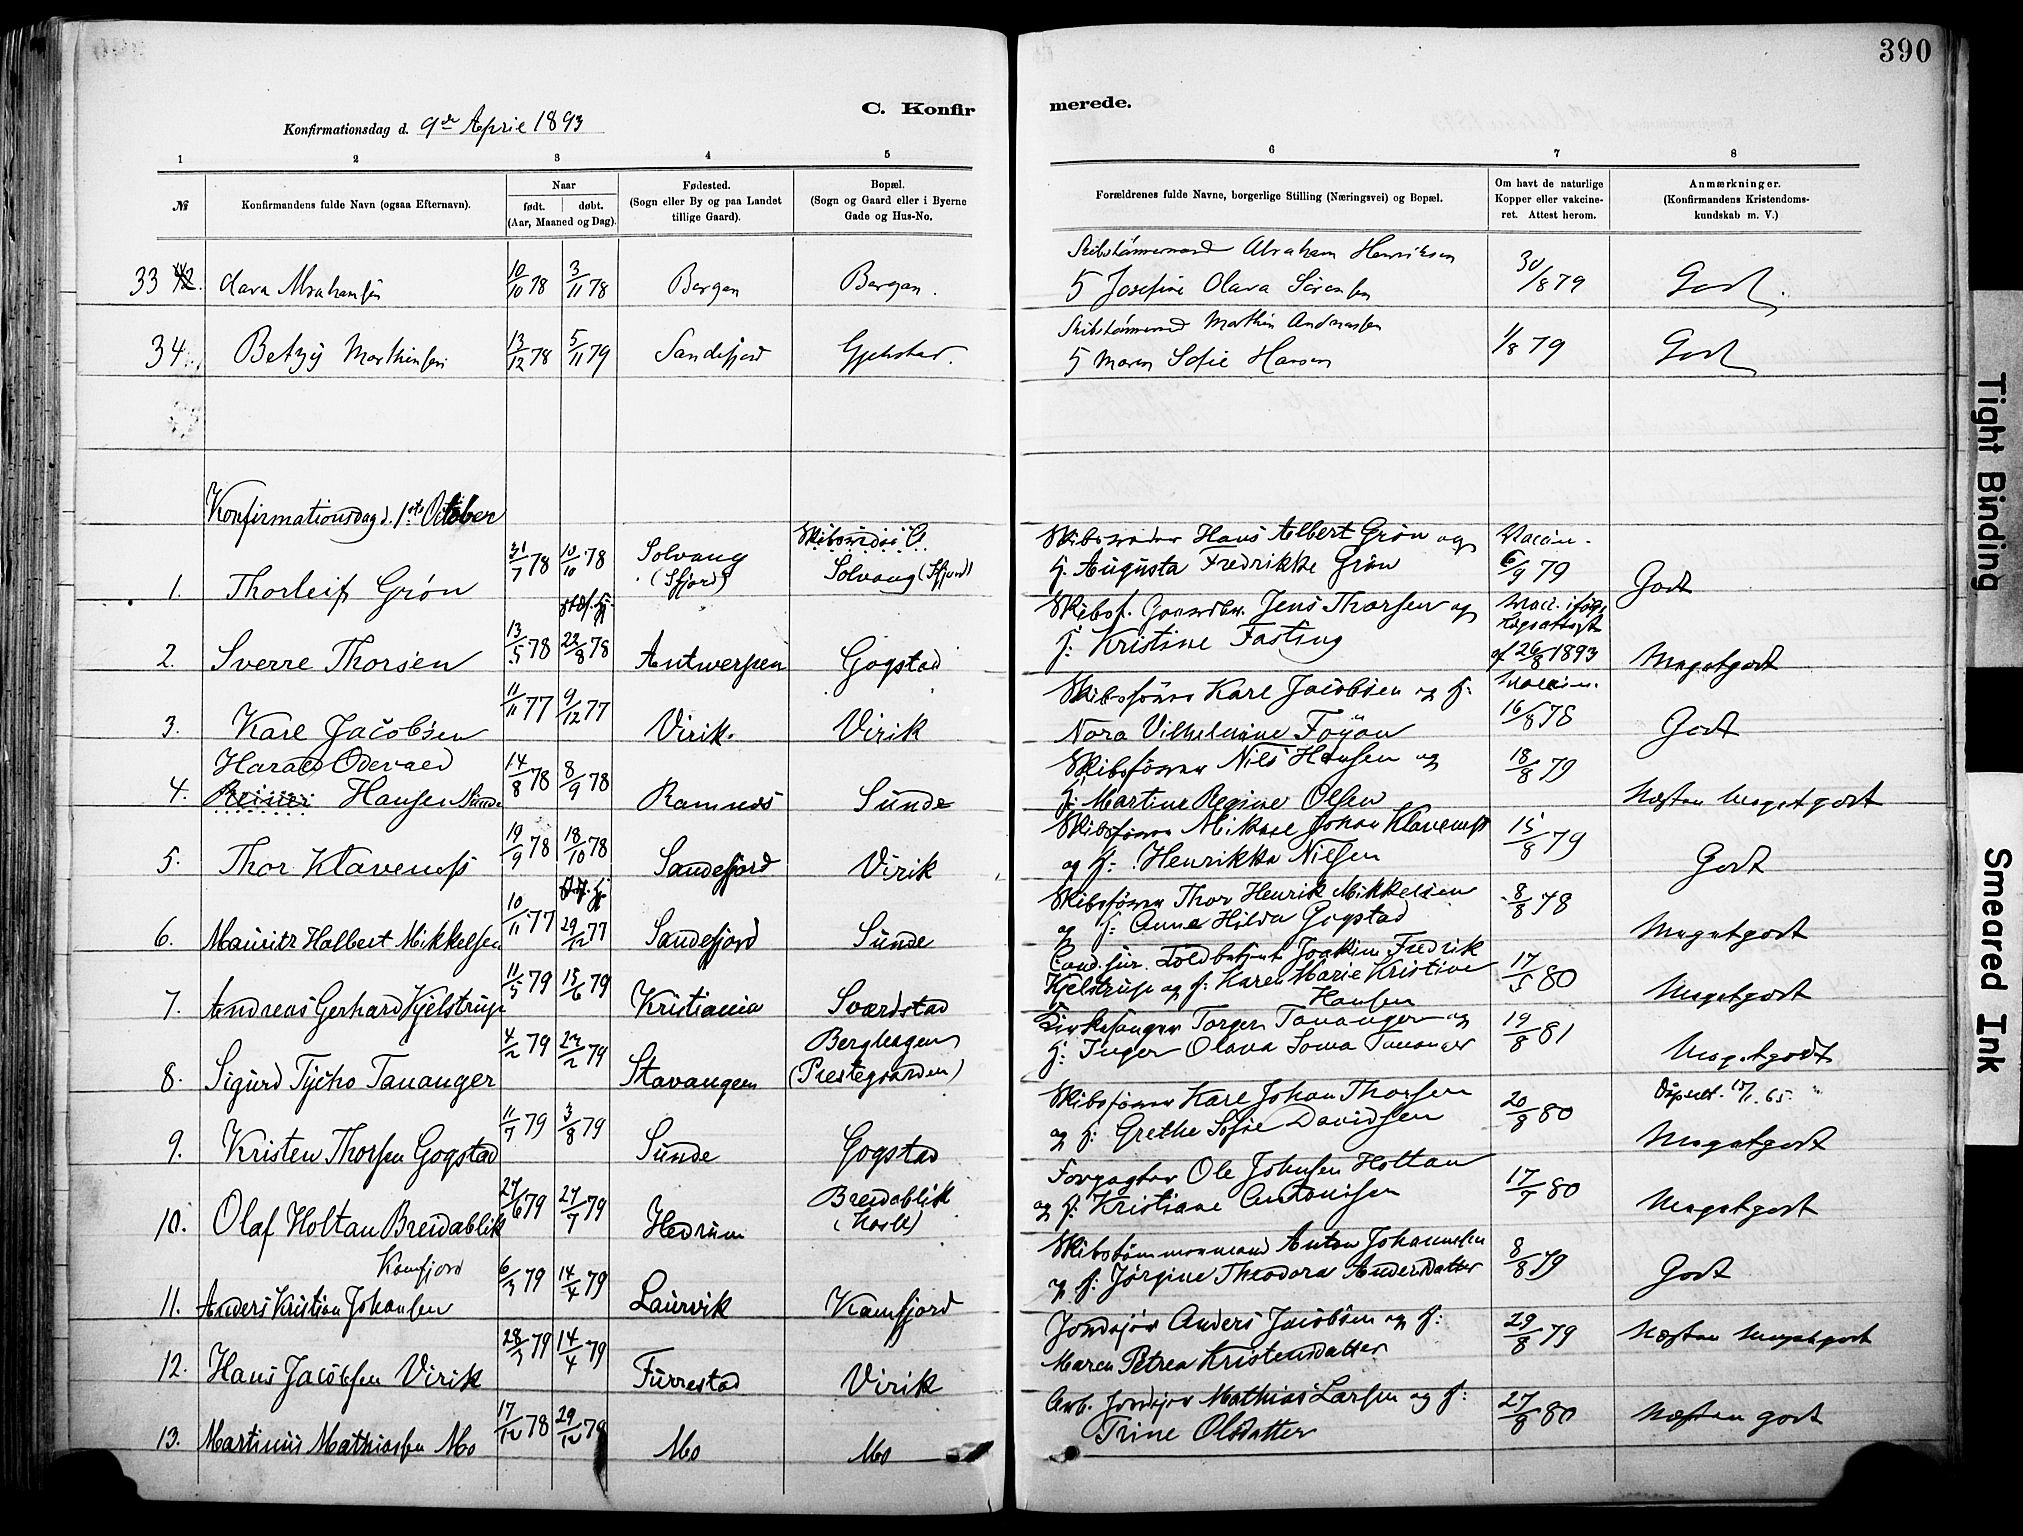 390
C. Konfirmerede.
Konfirmationsdag d. 9de April 1893
1 2 3 4 5 6 7 8
№
Konfirmandens fulde Navn (ogsaa Efternavn).
Naar
født. døbt.
(Aar, Maaned og Dag).
Fødested.
(Sogn eller By og paa Landet
tillige Gaard).
Bopæl.
(Sogn og Gaard eller i Byerne
Gade og Hus-No.
Forældrenes fulde Navne, borgerlige Stilling (Næringsvei) og Bopæl.
Om havt de naturlige
Kopper eller vakcine-
ret. Attest herom.
Anmærkninger.
(Konfirmandens Kristendoms-
kundskab m. V.)
33 Clara Abrahamsen 10/10 78 3/11 78 Bergan Bergan. Skibstømmermand Abraham Henriksen
5 Josefine Olava Sörensen 30/8 79 Godt.
34. Betzy Marthinsen 13/12 78 5/11 79 Sandefjord Gjekstad. Skibstømmermand Marthin Andreassen
5 Maren Sofie Hansen 1/8 79 Godt
Konfirmationsdag d. 1ste October
1. Thorleif Grøn 31/7 78 10/10 78 Solvang
(Sfjord) Solvang (Sfjord) Skibsreder Hans Albert Grøn og
H. Augusta Fredrikke Grøn Vaccin.
6/9 79 Godt
2. Sverre Thorsen 13/5 78 22/8 78 Antwerpen Gogstad Jens Thorsen og
H: Kristine Fasting
af 26/8 1893 Megetgodt
3. Karl Jacobsen 11/11 77 9/12 77 Virik. Virik Skibsfører Karl Jacobsen og H:
Nora Vilhelmine Föyon Vaccin.
16/8 78 Godt
4. Harald Odevald
Reiner Hansen Sunde 14/8 78 8/9 78 Ramnes Sunde Skibsfører Nils Hansen og
H: Martine Regine Olsen 18/8 79 Næsten Megetgodt
5. Thor Klaveness 19/9 78 18/10 78 Sandefjord Virik Skibsfører Mikael Johan Klaveness
og H: Henrikka Nielsen 15/8 79 Godt
6. Mauritz Halbert Mikkelsen 10/11 77 29/12 77 Sandefjord Sunde Skibsfører Thor Henrik Mikkelsen
og H: Anna Hilda Gogstad 8/8 78 Megetgodt
7. Andreas Gerhard Kjelstrup 11/5 79 15/6 79 Kristiania Sværdstad Cand. jur. Toldbetjent Joakim Fredrik
Kjelstrup og H: Karen Marie Kristine
Hansen 17/5 80 Megetgodt
8. Sigurd Tycho Tananger 4/2 79 Stavangem Berghagen
(Prestegaarden) Kirkesanger Torger Tananger og
H: Inger Olava Soma Tananger 19/8 81 Megetgodt
9. Kristen Thorsen Gogstad 11/7 79 3/8 79 Sunde Gogstad Skibsfører Karl Johan Thorsen
og H: Grethe Sofie Davidsen 20/8 80 Megetgodt
10. Olaf Holtan Breidablik 27/6 79 27/7 79 Hedrum Breidablik Forpagter Ole Johnsen Holtan
og H: Kristiane Antonisen 17/7 80 Megetgodt
11. Anders Kristian Johansen
Kamfjord 6/3 79 14/4 79 Laurvik Kamfjord Skibstømmermand Anton Johannesen
og H: Jörgine Theodora Andersdatter 8/8 79 Godt
12. Hans Jacobsen Virik 28/3 79 14/4 79 Furrestad Virik Jordejer Anders Jacobsen og H:
Maren Petrea Kristensdatter 29/8 79 Næsten Megetgodt
13. Martinius Mathiassen Mo 17/12 78 29/12 79 Mo Mo Arb. Jordejer Mathias Larsen og H:
Trine Olsdatter 27/8 80 Næsten godt
Tight Binding
Smeared Ink